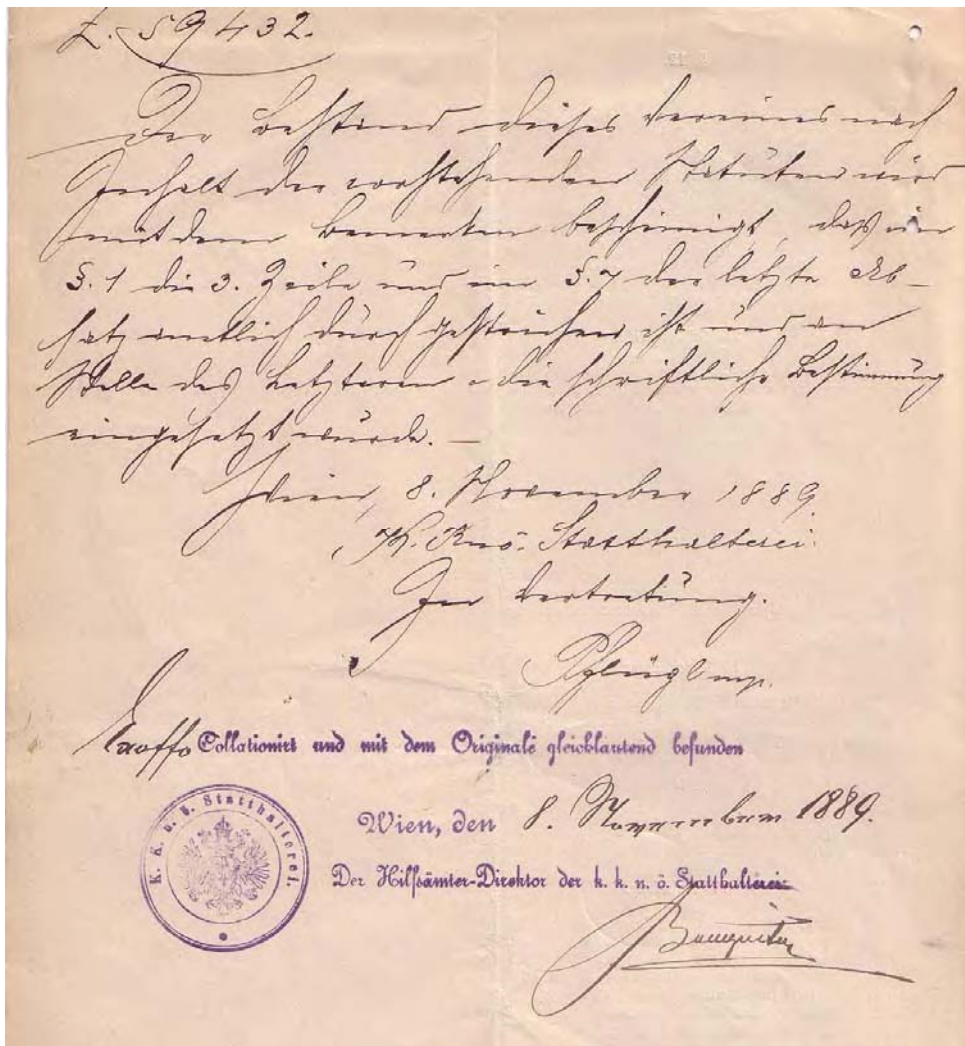 Z. 59432.
Der Bestand dieses Vereines nach
Inhalt der vorstehenden Statuten wird
mit dem Bemerken bescheinigt, daß im
§. 1 die 3. Zeile und im §. 7 der letzte Ab-
satz amtlich durchgestrichen ist und an
Stelle des Letzteren die schriftliche Bestimmung
eingesetzt wurde. —
Wien, 8. November 1889.
K. K. n. ö. Statthalterei.
In Vertretung.
mp.
Collationirt und mit dem Originale gleichlautend befunden
Wien, den 8. November 1889.
K. K. n. ö. Statthalterei.
Der Hilfsämter-Direktor der k. k. n. ö. Statthalterei